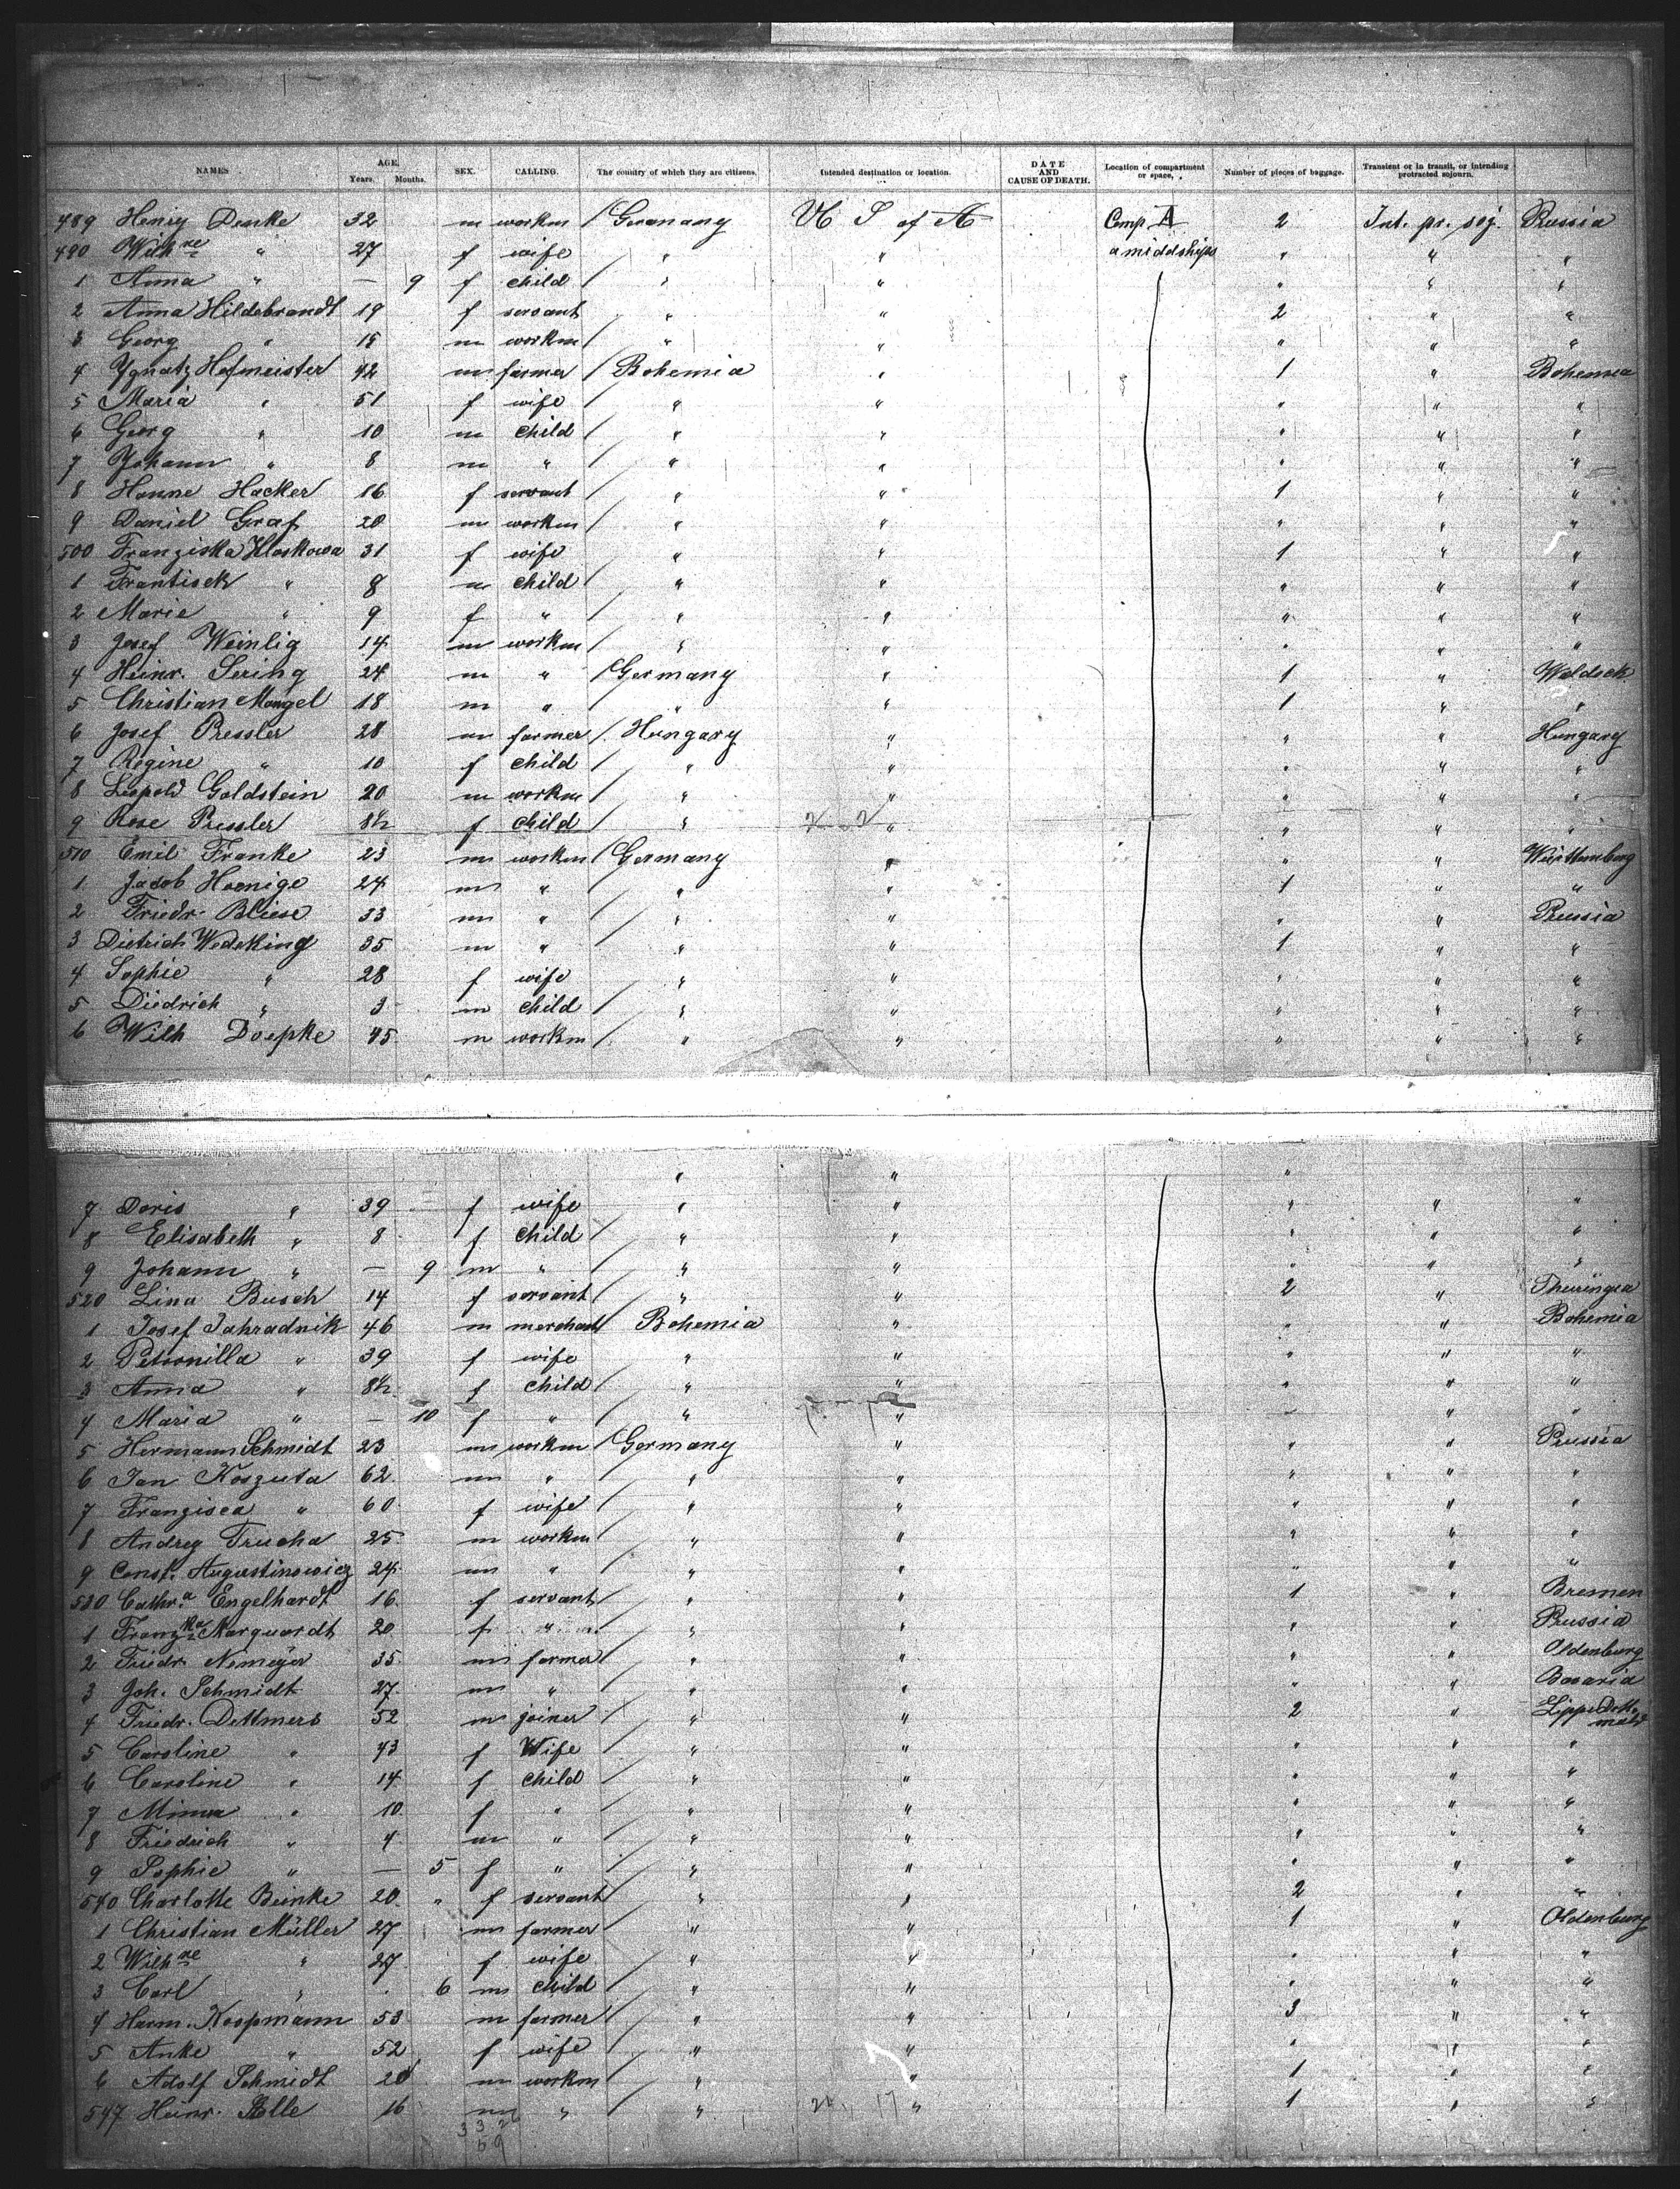 NAMES. AGE. Years. Months. SEX. CALLING. The country of which they are citizens. Intended destination or location. DATE AND CAUSE OF DEATH. Location of compartment or space. Number of pieces of baggage. Transient or in transit, or intending protracted sojourn.
489 Henry Denke 32 m workm Germany U S of A Comp. A 2 Int. pr. soj. Prussia
490 Wilhne " 27 f wife " " amiddships " " "
1 Anna " — 9 f child " " " " "
2 Anna Hildebrandt 19 f servant " " 2 " "
3 Georg " 15 m workm " " " " "
4 Ygnatz Hofmeister 42 m farmer Bohemia " 1 " Bohemia
5 Maria " 51 f wife " " " " "
6 Georg " 10 m child " " " " "
7 Johann " 8 m " " " " " "
8 Hanne Hacker 16 f servant " " 1 " "
9 Daniel Graf 20 m workm " " " " "
500 Franziska Kloskowa 31 f wife " " 1 " "
1 Frantisek " 8 m child " " " " "
2 Marie " 9 f " " " " " "
3 Josef Weinlig 14 m workm " " " " "
4 Heinr. Sering 24 m " Germany " 1 " Waldeck
5 Christian Mangel 18 m " " " 1 " "
6 Josef Pressler 28 m farmer Hungary " " " Hungary
7 Regine " 10 f child " " " " "
8 Leopold Goldstein 20 m workm " " " " "
9 Rose Pressler 8½ f child " " " " "
510 Emil Franke 23 m workm Germany " " " Württemberg
1 Jacob Hoenige 24 m " " " 1 " "
2 Friedr. Bliese 33 m " " " " " Prussia
3 Dietrich Wedeking 35 m " " " 1 " "
4 Sophie " 28 f wife " " " " "
5 Diedrich " 3 m child " " " " "
6 Wilh Doepke 45 m workm " " " " "
" " "
7 Doris " 39 f wife " " " " "
8 Elisabeth " 8 f child " " " " "
9 Johann " — 9 m " " " " " "
520 Lina Busch 14 f servant " " 2 " Thuringea
1 Josef Jahradnik 46 m merchant Bohemia " " " Bohemia
2 Petronilla " 39 f wife " " " " "
3 Anna " 8½ f child " " " " "
4 Maria " — 10 f " " " " " "
5 Hermann Schmidt 23 m workm Germany " " " Prussia
6 Jan Koszuta 62 m " " " " " "
7 Franzisca " 60 f wife " " " " "
8 Andrey Trucha 25 m workm " " " " "
9 Const. Augustinowicz 24 m " " " " " "
530 Cathr.a Engelhardt 16 f servant " " 1 " Bremen
1 Franzka Marquardt 20 f " " " " " Prussia
2 Friedr Nemeyer 35 m farmer " " " " Oldenburg
3 Joh. Schmidt 27 m " " " " " Bavaria
4 Friedr. Dettmers 52 m joiner " " 2 " Lippe Detmold
5 Caroline " 43 f Wife " " " " "
6 Caroline " 14 f child " " " " "
7 Minna " 10 f " " " " " "
8 Friedrich " 4 m " " " " " "
9 Sophie " — 5 f " " " " " "
540 Charlotte Beinke 20 " f servant " " 2 " "
1 Christian Müller 27 m farmer " " 1 " Oldenburg
2 Wilhne " 27 f wife " " " " "
3 Carl " 6 m child " " " " "
4 Harm. Koopmann 53 m farmer " " 3 " "
5 Anke " 52 f wife " " " " "
6 Adolf Schmidt 20 m workm " " 1 " "
547 Heinr. Stolle 16 m " " " 1 " "